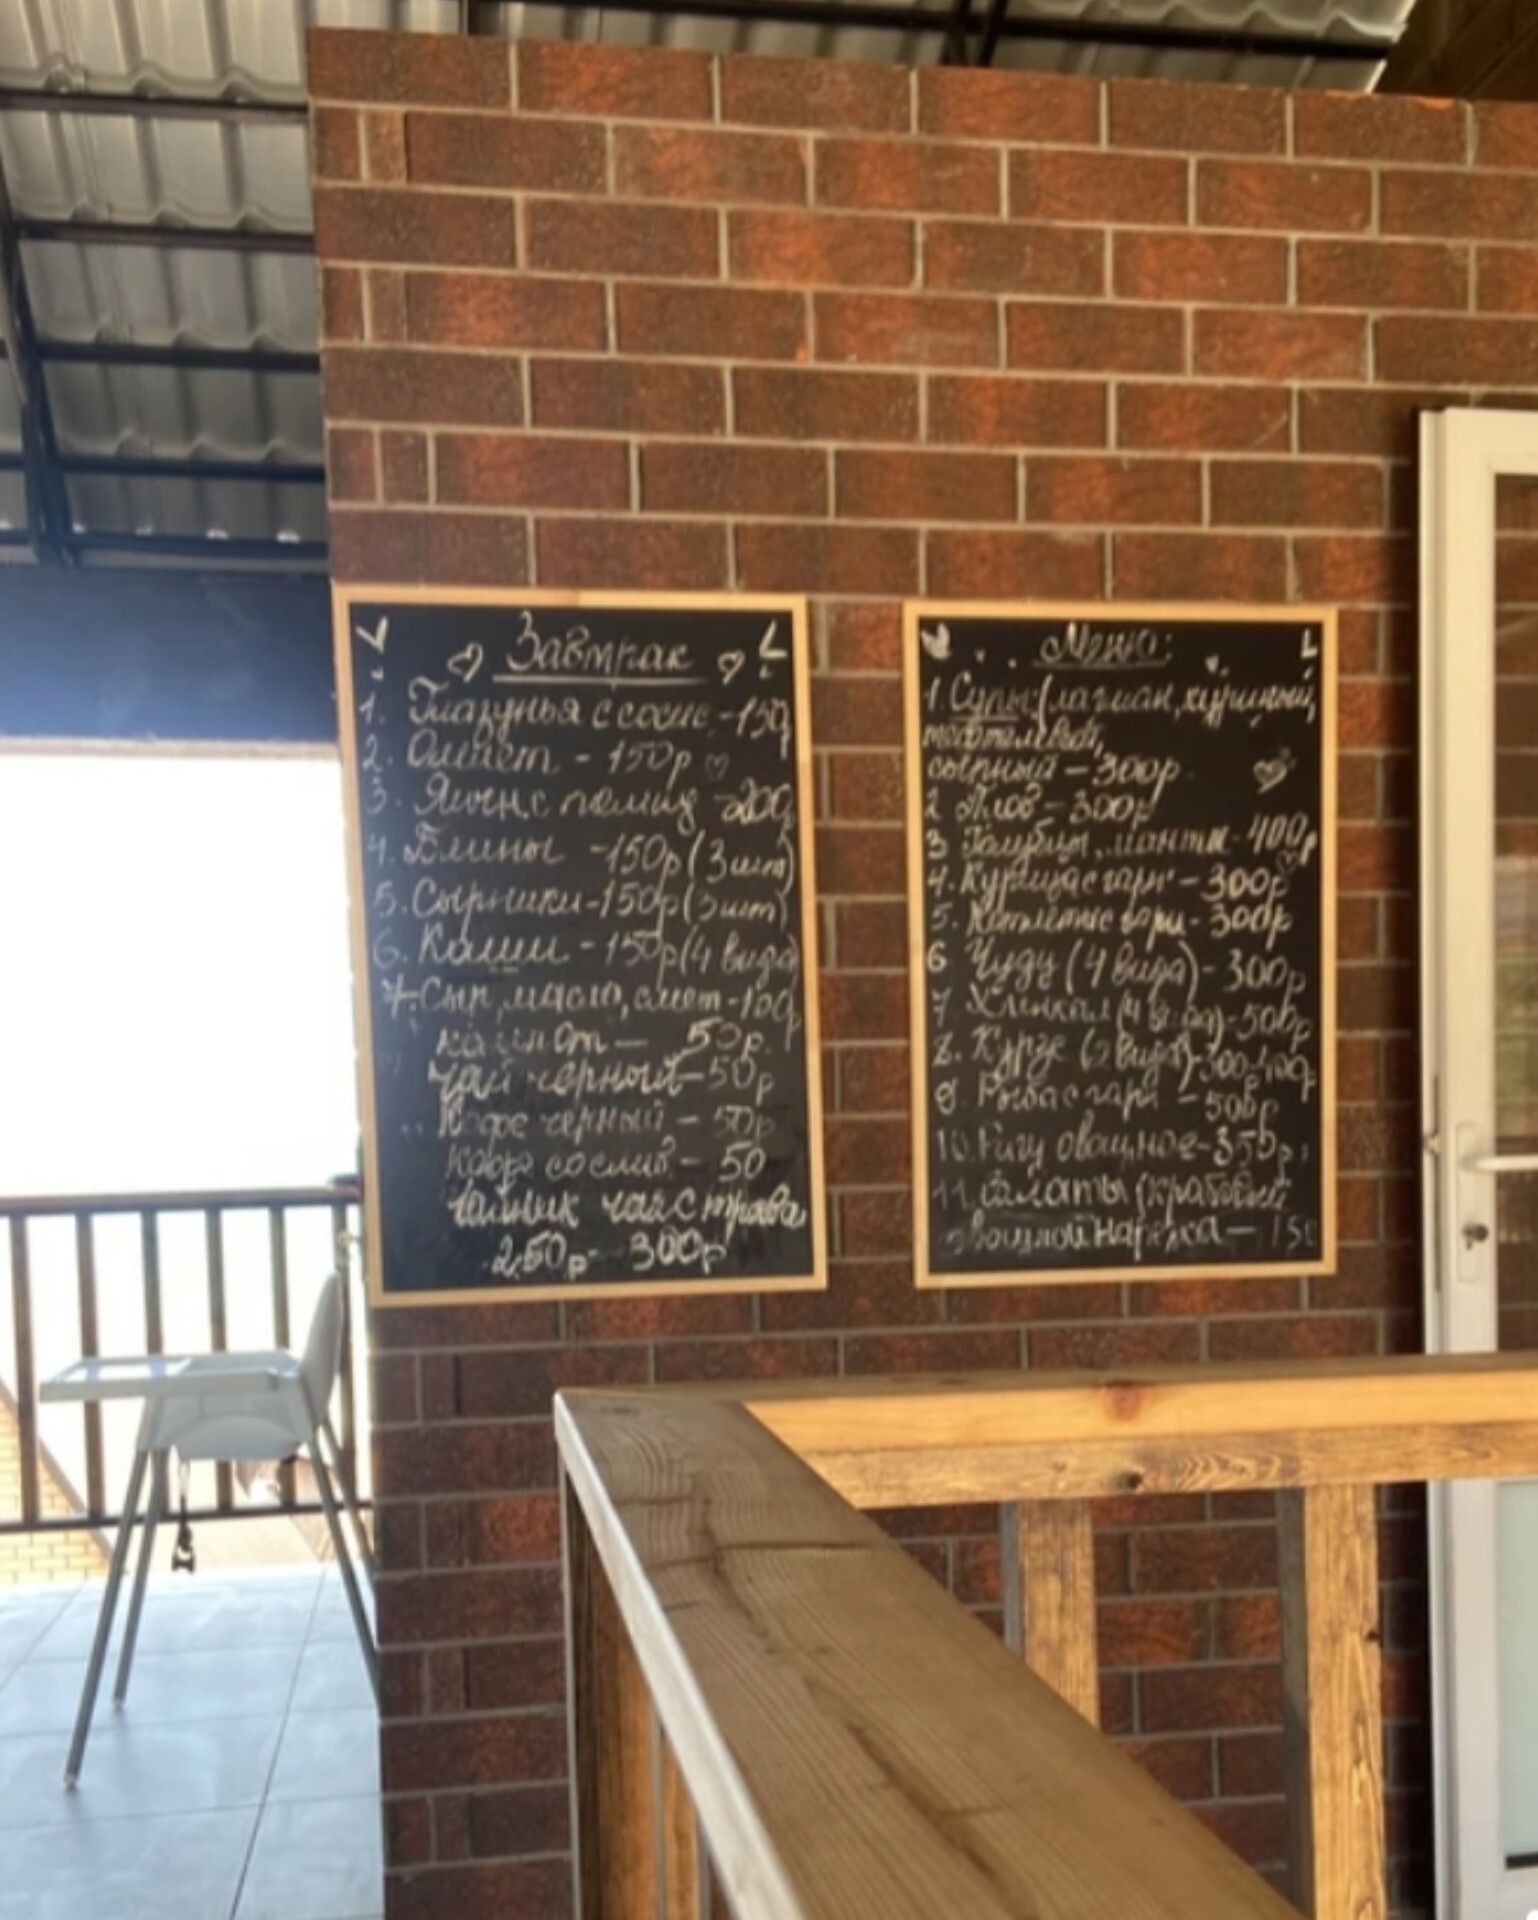 Завтрак
1. Глазунья с сосис - 150р
2. Омлет - 150р
3. Яичн. с помид - 200р
4. Блины - 150р (3шт)
5. Сырники - 150р (3шт)
6. Каши - 150р (4 вида)
7. Сыр, масло, смет - 100р
50р.
чай черный - 50р
Кофе черный - 50р
Кофе со слив - 50
Чайник чая с трава
250р - 300р
Меню:
1. Супы: (лагман, куриный,
сырный - 300р
2 Плов - 300р
3 Голубцы, манты - 400р
4. Курица с гарн - 300р
5. Котлеты с гарн - 300р
6 Чуду (4 вида) - 300р
7 Хинкал (4 вида) - 500р
8. Курзе (2 вида) - 300-400р
9. Рыба с гарн - 500р
10. Рагу овощное - 350р
11. Салаты (крабовый
овощной нарезка - 150